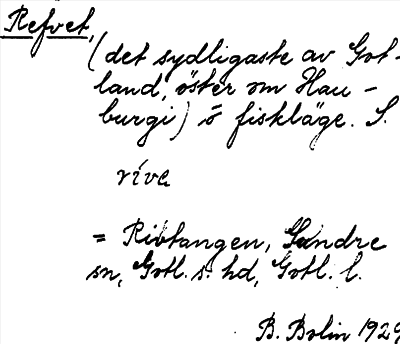 Refvet,
(det sydligaste av Got-
land, öster om Hau-
burgi) s fiskläge. S.
rive
= Rivtangen, Sundre
sn, Gotl. s. hd, Gotl. l.
B. Bolin 1929